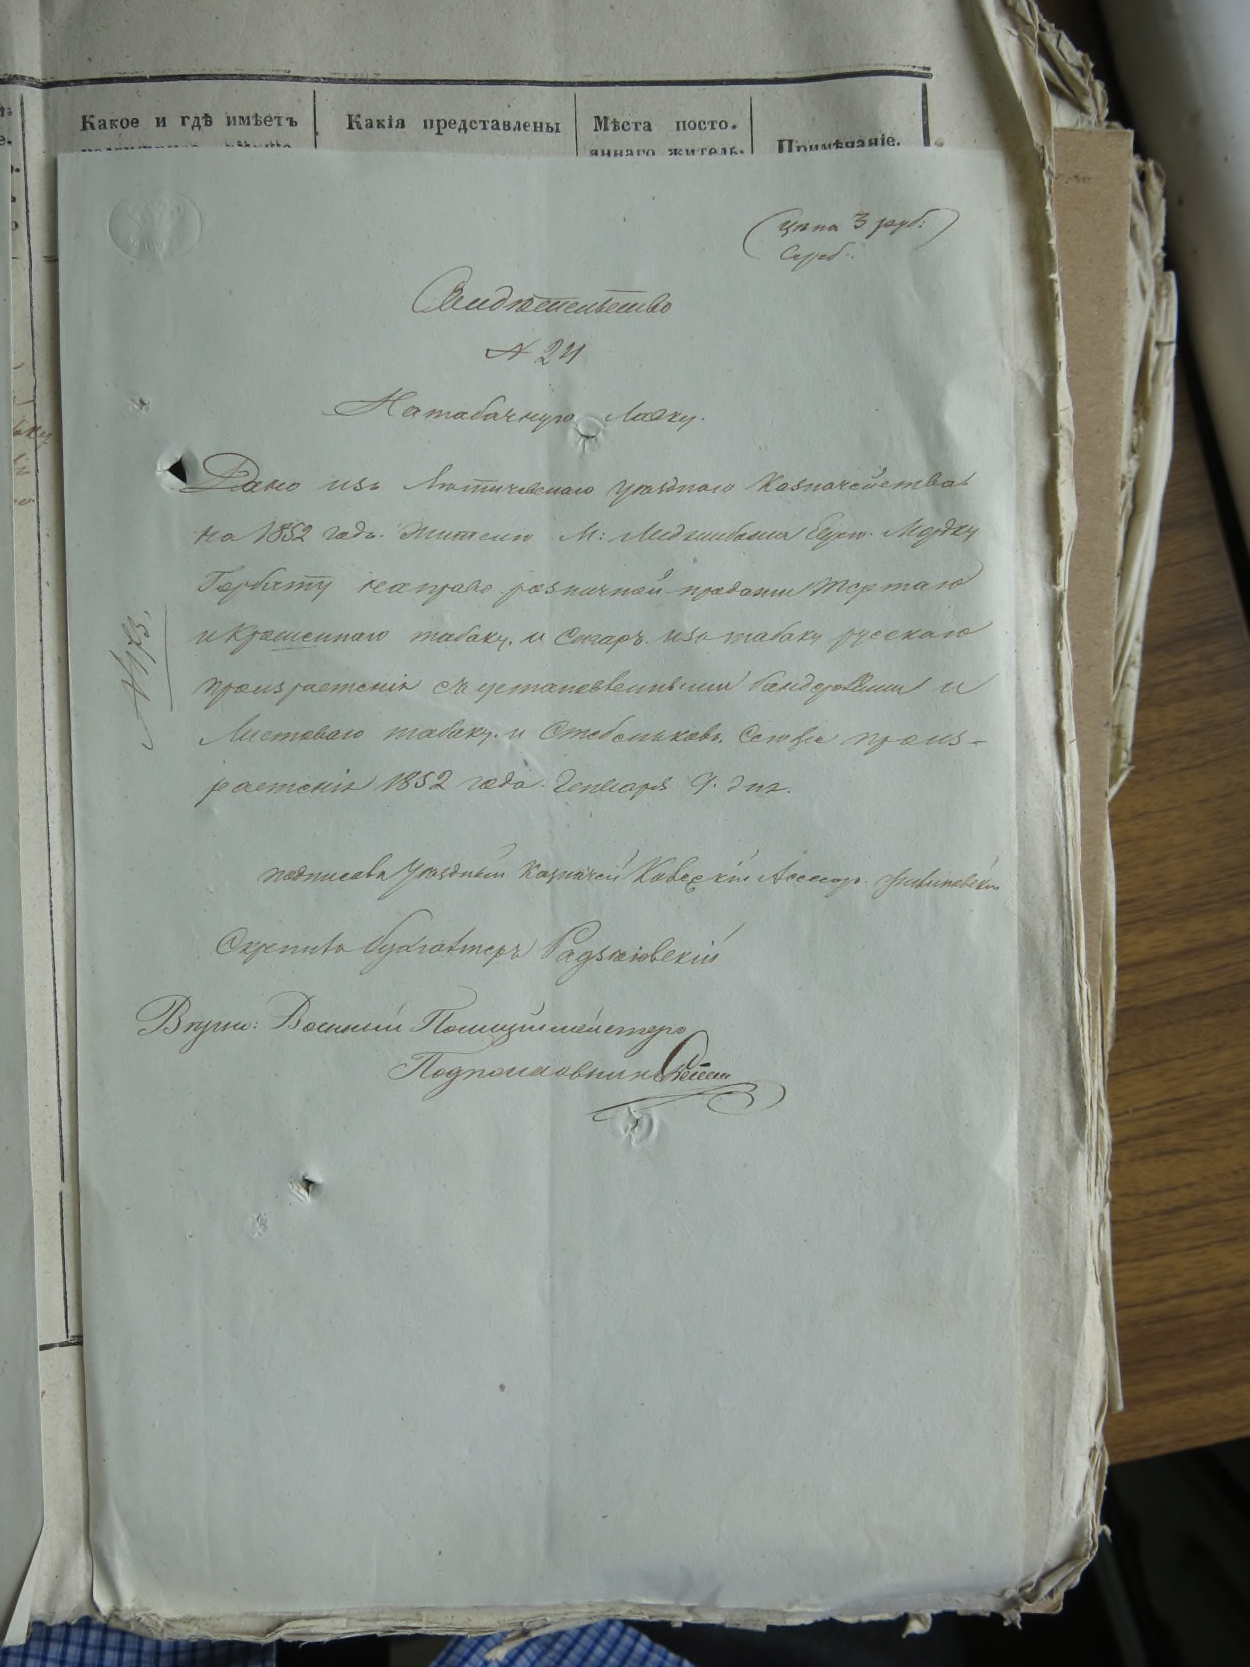 Какое и гдѣ имѣетъ
Какія представлены
Мѣста посто-
яннаго житель-
Примѣчаніе.
(цѣна 3 руб:
Сереб:)
Свидѣтельство
№ 24
На табачную Лавку.
Дано изъ Летичевскаго Уѣзднаго Казначейства
на 1852 годъ. Жителю М: Меджибожа Евр. Мордку
Горбату на право розничной продажи Тертаго
и Крошеннаго табаку. и Сигаръ изъ табаку русскаго
произрастенія съ установленными бандеролями и
Листоваго табаку. и Стебельковъ. Сего произ-
растенія 1852 года. Генваря 9. дня.
№ 173.
подписалъ Уѣздный Казначей Асессоръ
Скрепилъ бухгалтеръ Радзіовскій
Вѣрно: Военный Полицiймейстеръ
Подполковникъ